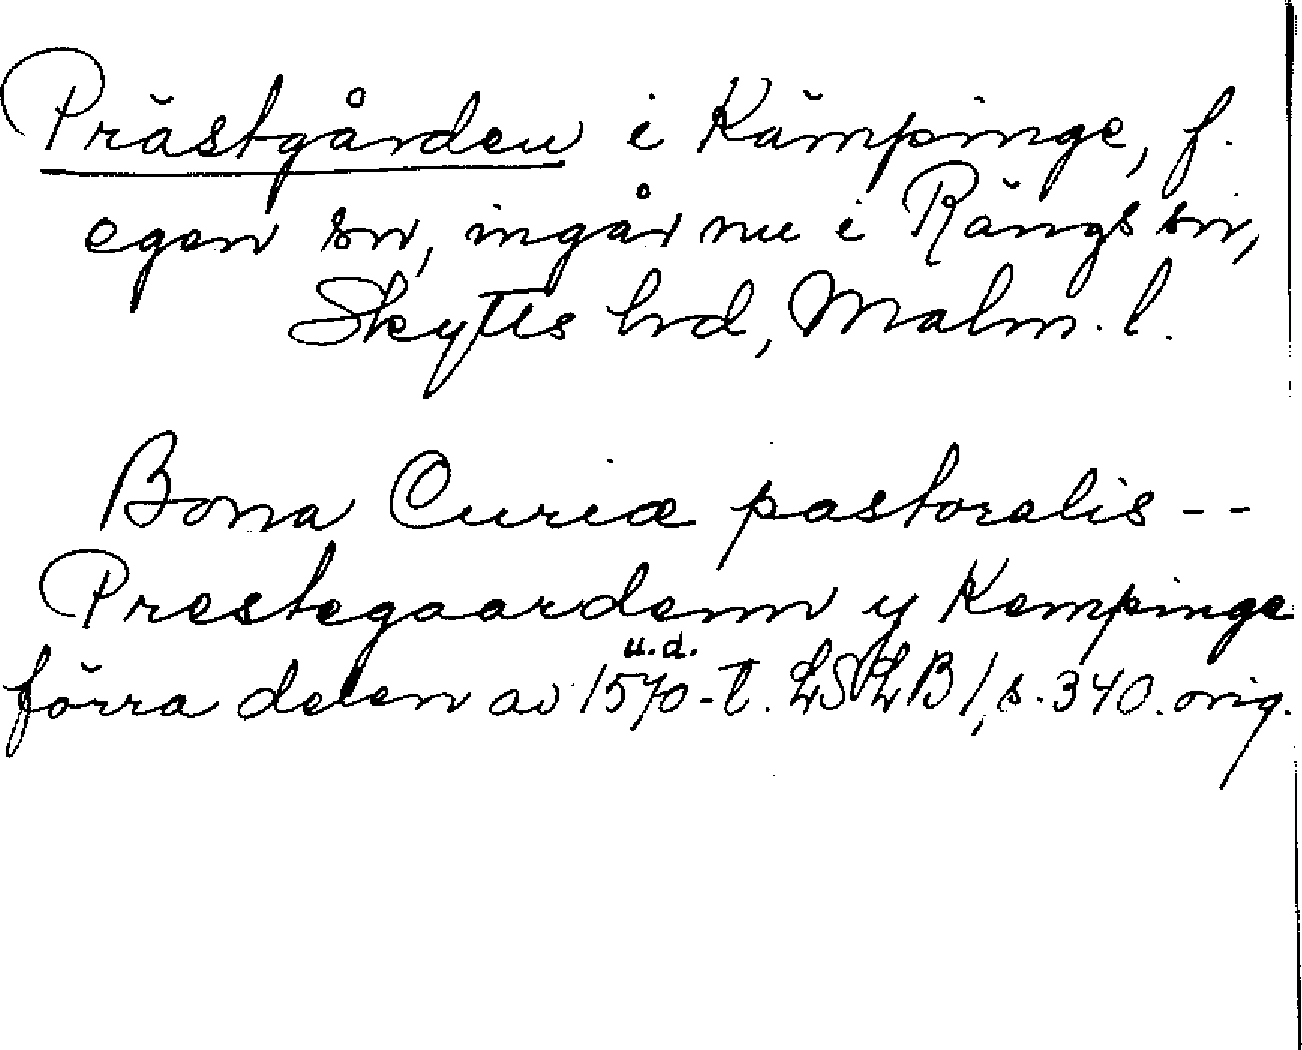 Prästgården i Kämpinge, f.
egen sn, ingår nu i Rängs sn,
Skytts hrd, Malm. l.
Bona Curiæ pastoralis --
Prestegaardenn y Kempinge
u.d.
förra delen av 1570-t. LSLB 1, s. 340. orig.